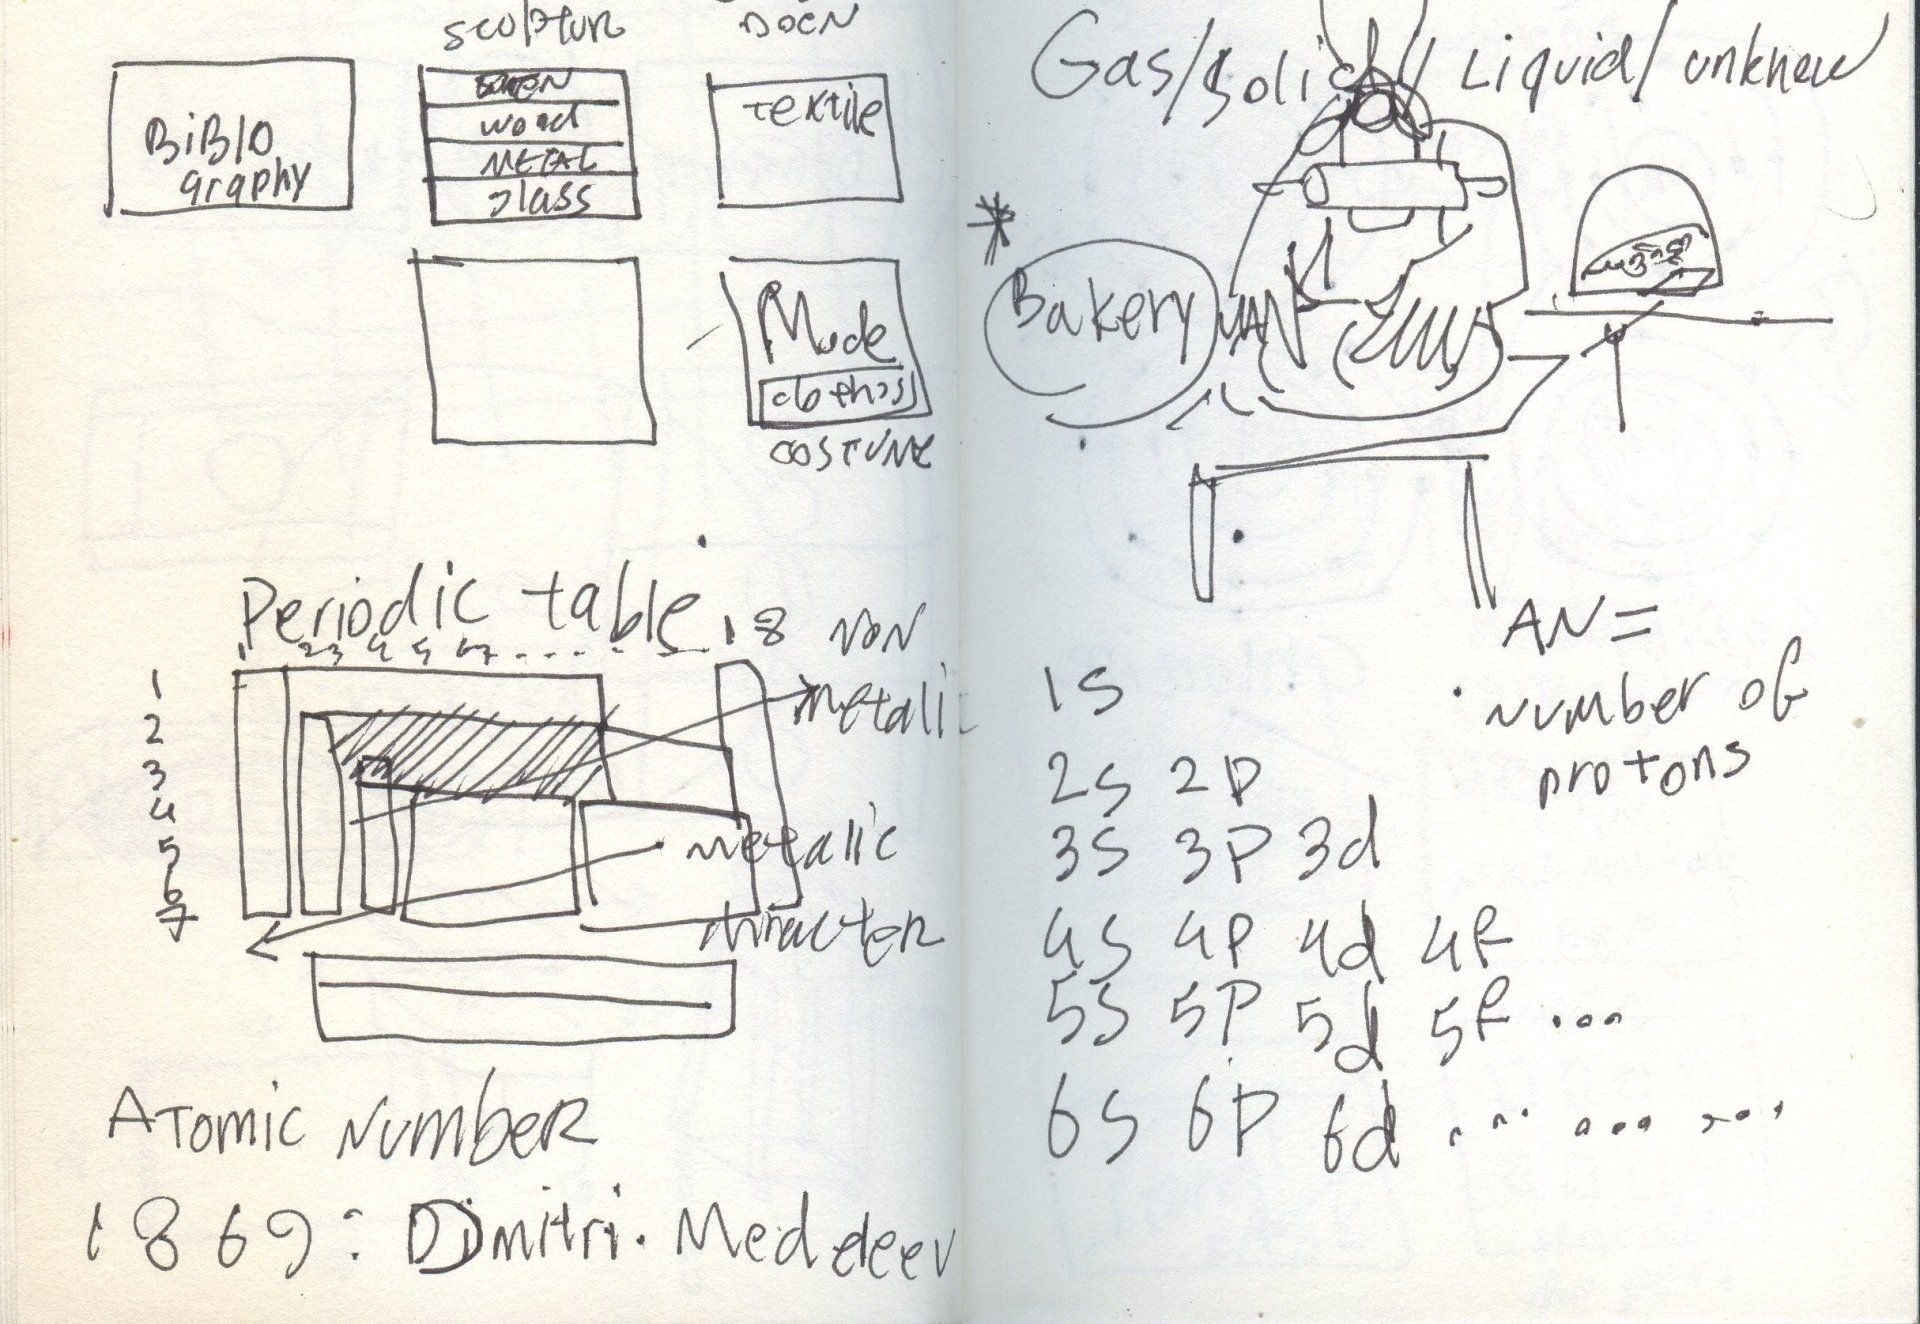 sculptur
BiBlo
graphy
wood
METAL
glass
textile
Mode
COSTUME
Periodic table
1 2 3 4 5 6 7 . . . . . 18
1
2
3
4
5
6
7
NON
metalic
metalic
character
Atomic Number
1869: Dimitri. Medeleev
Gas/solid/Liquid/unknew
* Bakery MAN
AN =
number of
protons
1S
2S 2P
3S 3P 3d
4S 4P 4d 4f
5S 5P 5d 5f ...
6S 6P 6d ... ... ...